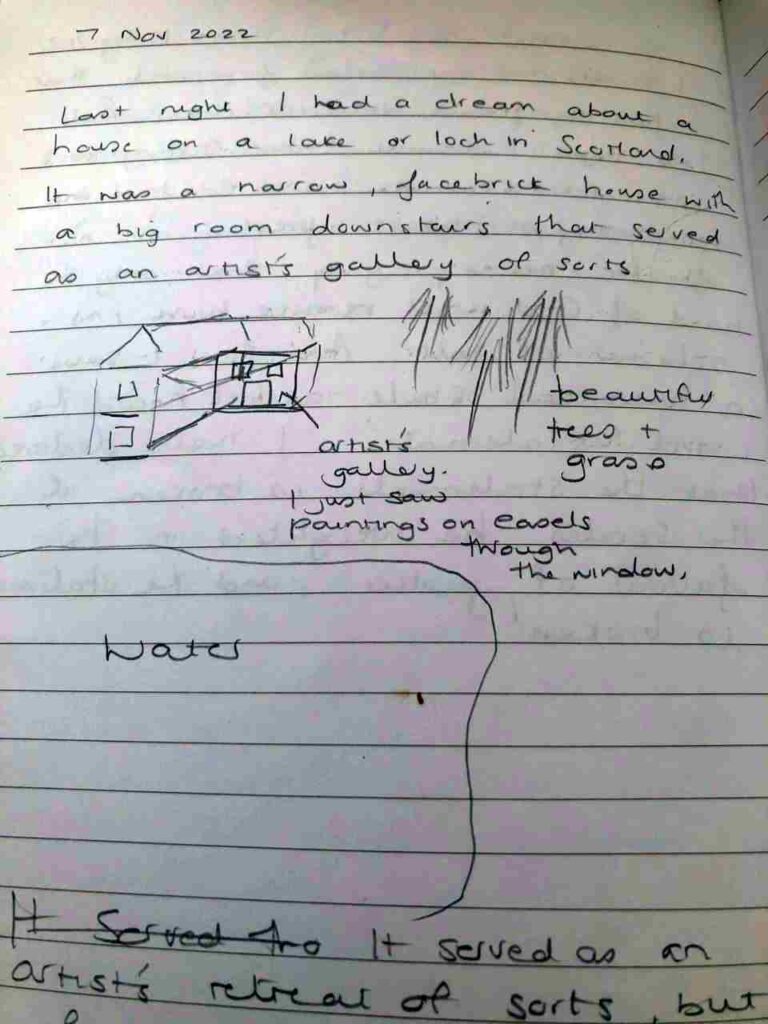 7 Nov 2022
Last night I had a dream about a
house on a lake or loch in Scotland.
It was a narrow, facebrick house with
a big room downstairs that served
as an artist's gallery of sorts
beautiful
trees +
grass
artist's
gallery.
I just saw
paintings on easels
though
the window,
Water
It served as an
artist's retreat of sorts, but